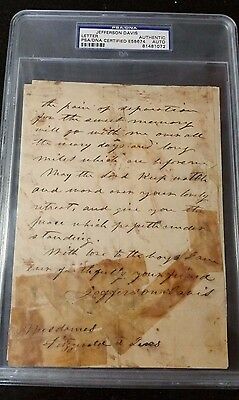 PSA/DNA
JEFFERSON DAVIS
LETTER AUTHENTIC
PSA/DNA CERTIFIED E58674 AUTO
81481072
the pain of separation
for the sweet memory
will go with me on all
the many days and long
miles which are before me.
May the Lord keep watch
and ward over your lovely
retreat and give you the
peace which passeth under
standing.
With love to the boys I am
ever faithfully your friend
Jefferson Davis
Mesdames